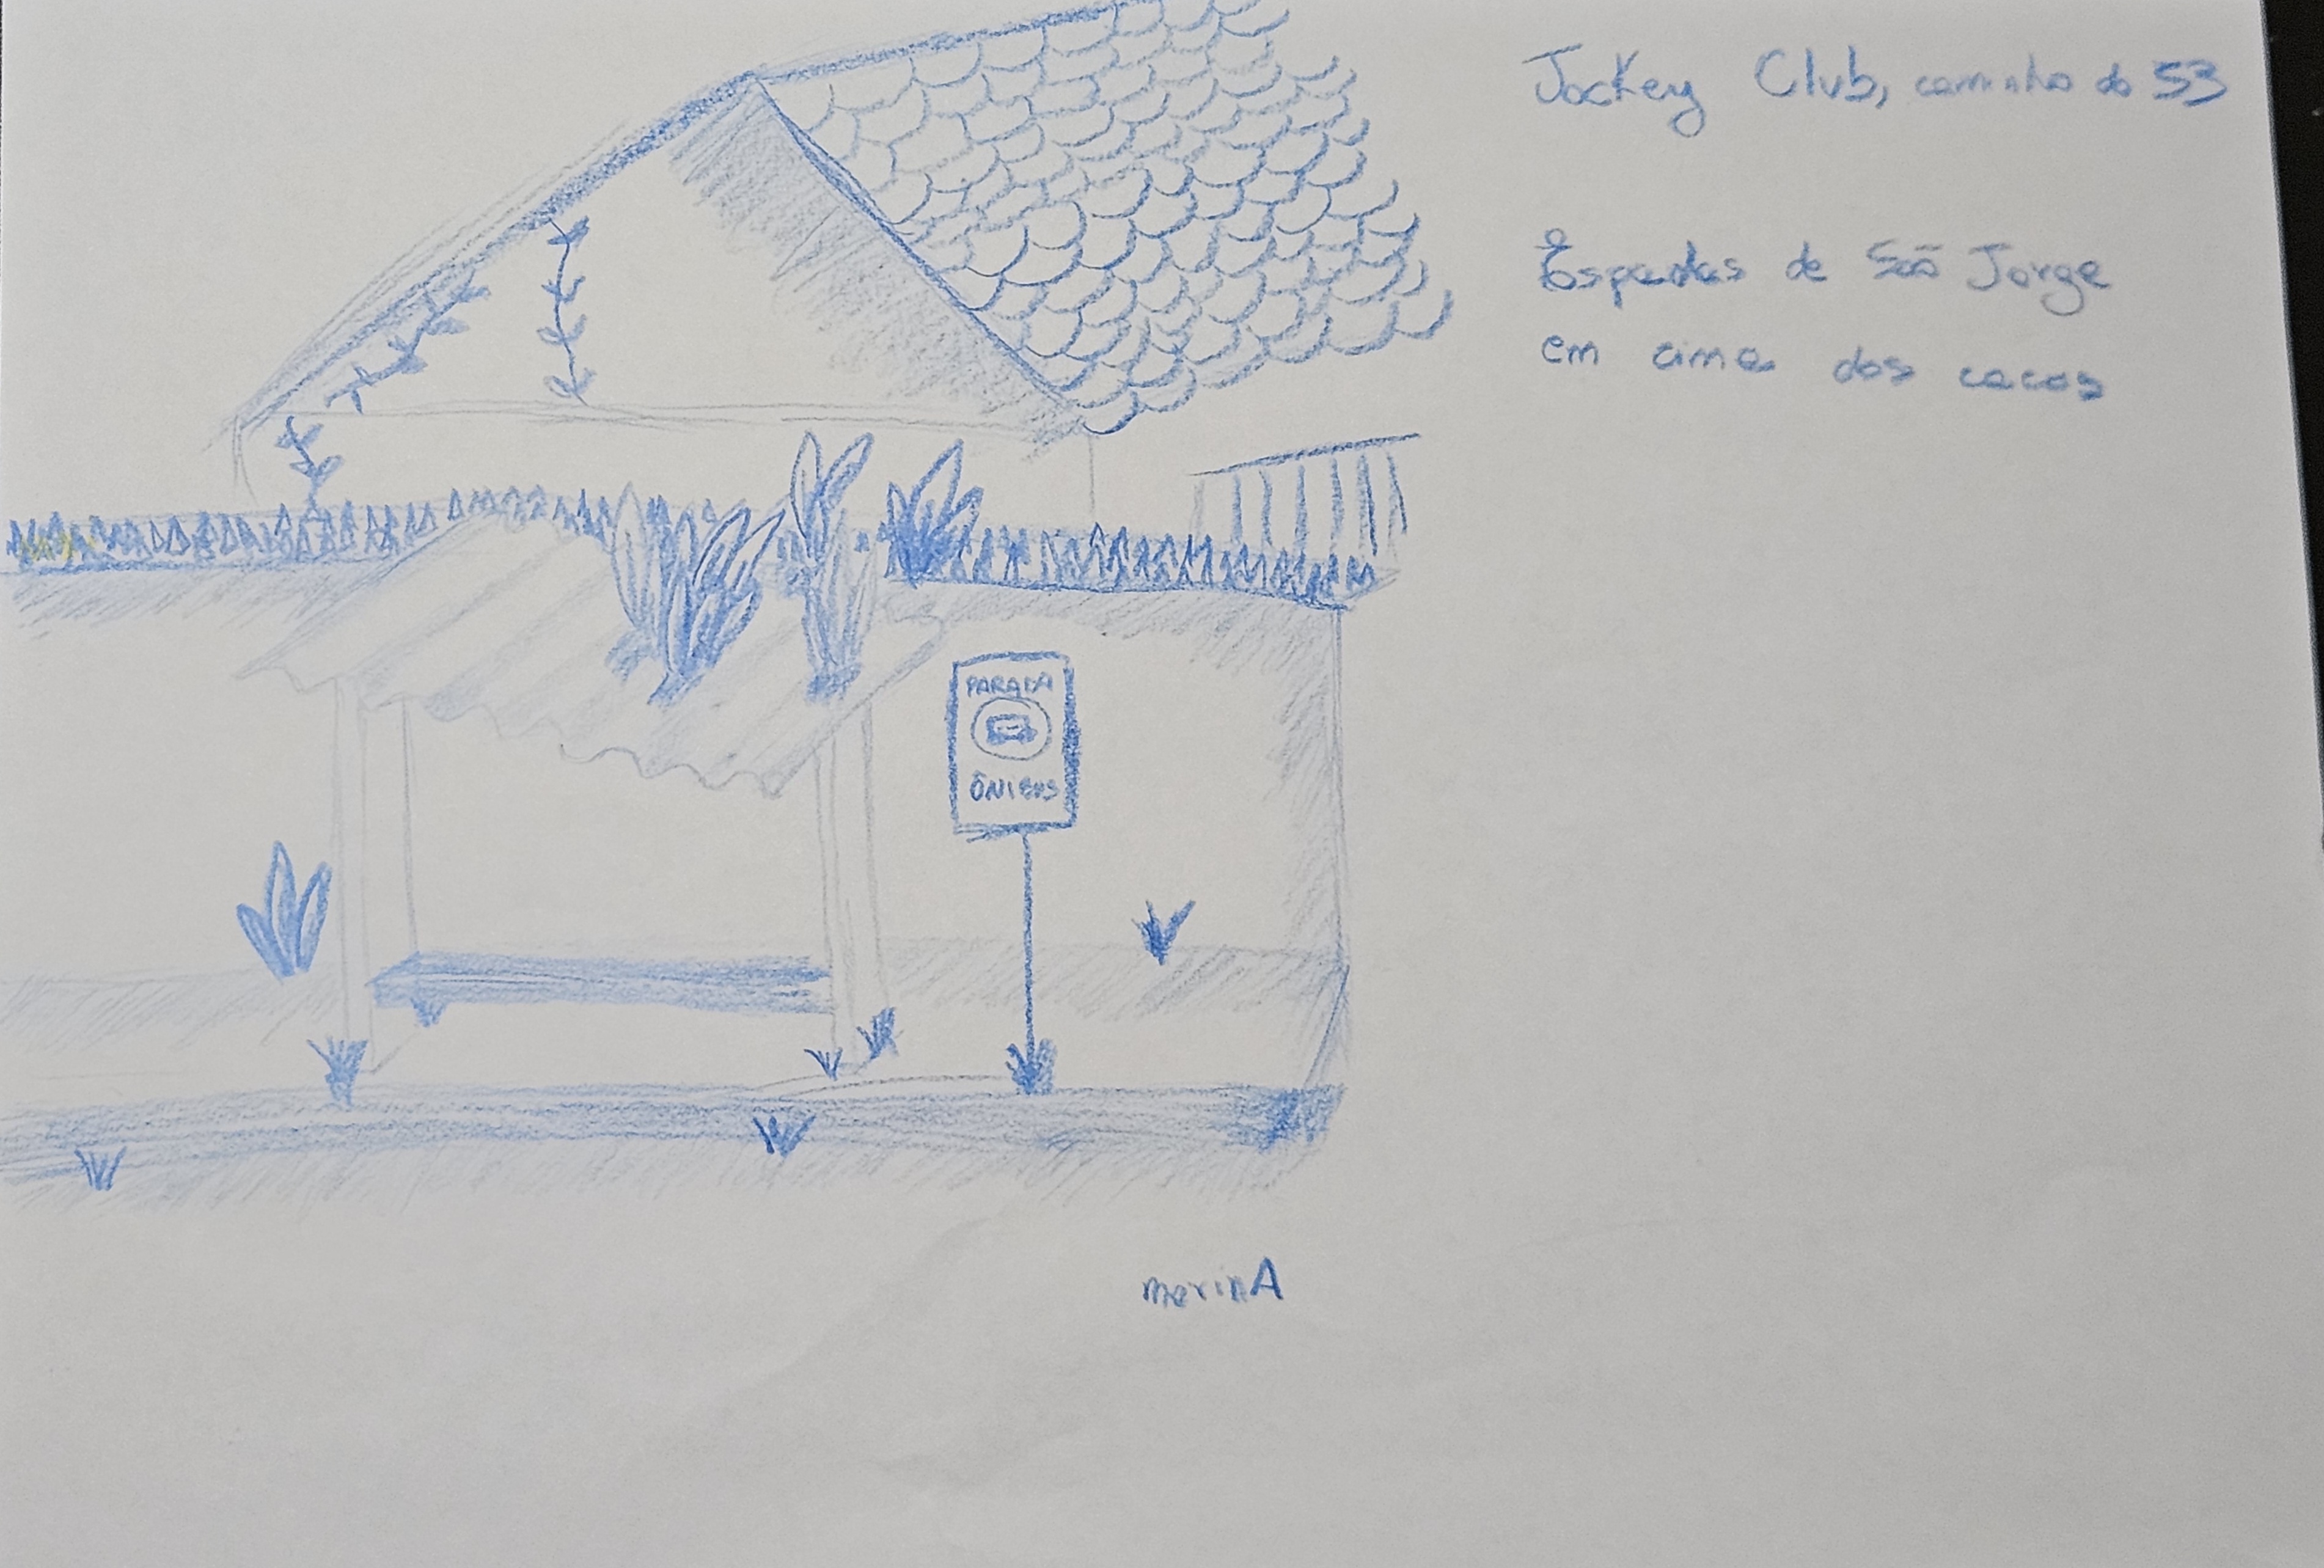 Jockey Club, caminho do 53
Espadas de São Jorge
em cima dos cacos
PARADA
ÔNIBUS
marinA